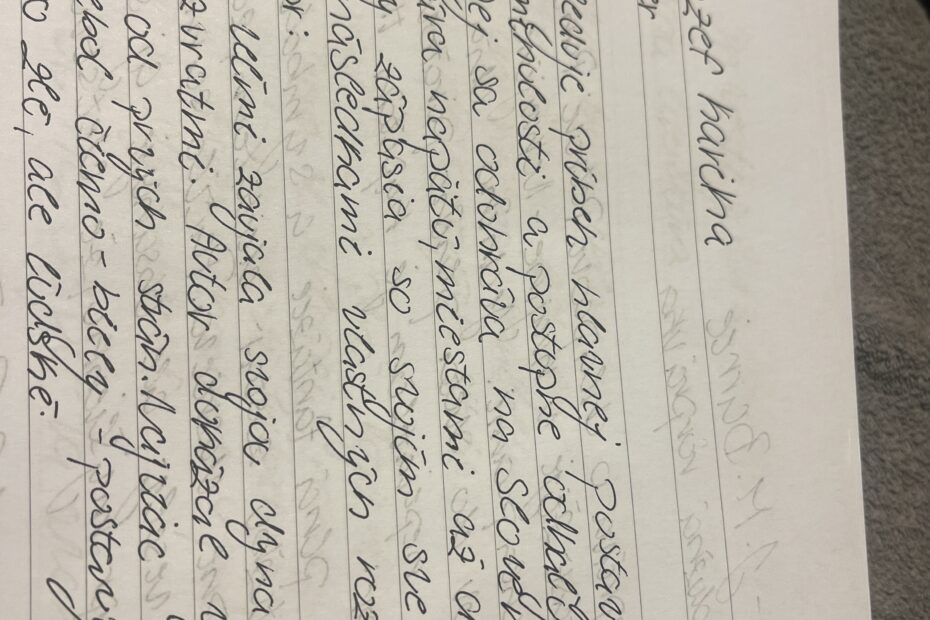 zef karika
er
eduje príbeh hlavnej postav
mnulosti a postupne odhalí
ej sa odohráva na Sloven
úra napätú, miestami až
zápasia so svojim sve
následkami vlastných roz
or:
velmi zaujala svoja dyna
zvratmi. Autor dokázal
od prvých strán. Najviac
ebol čierno-biely - postavy
o zlé, ale lúdské.